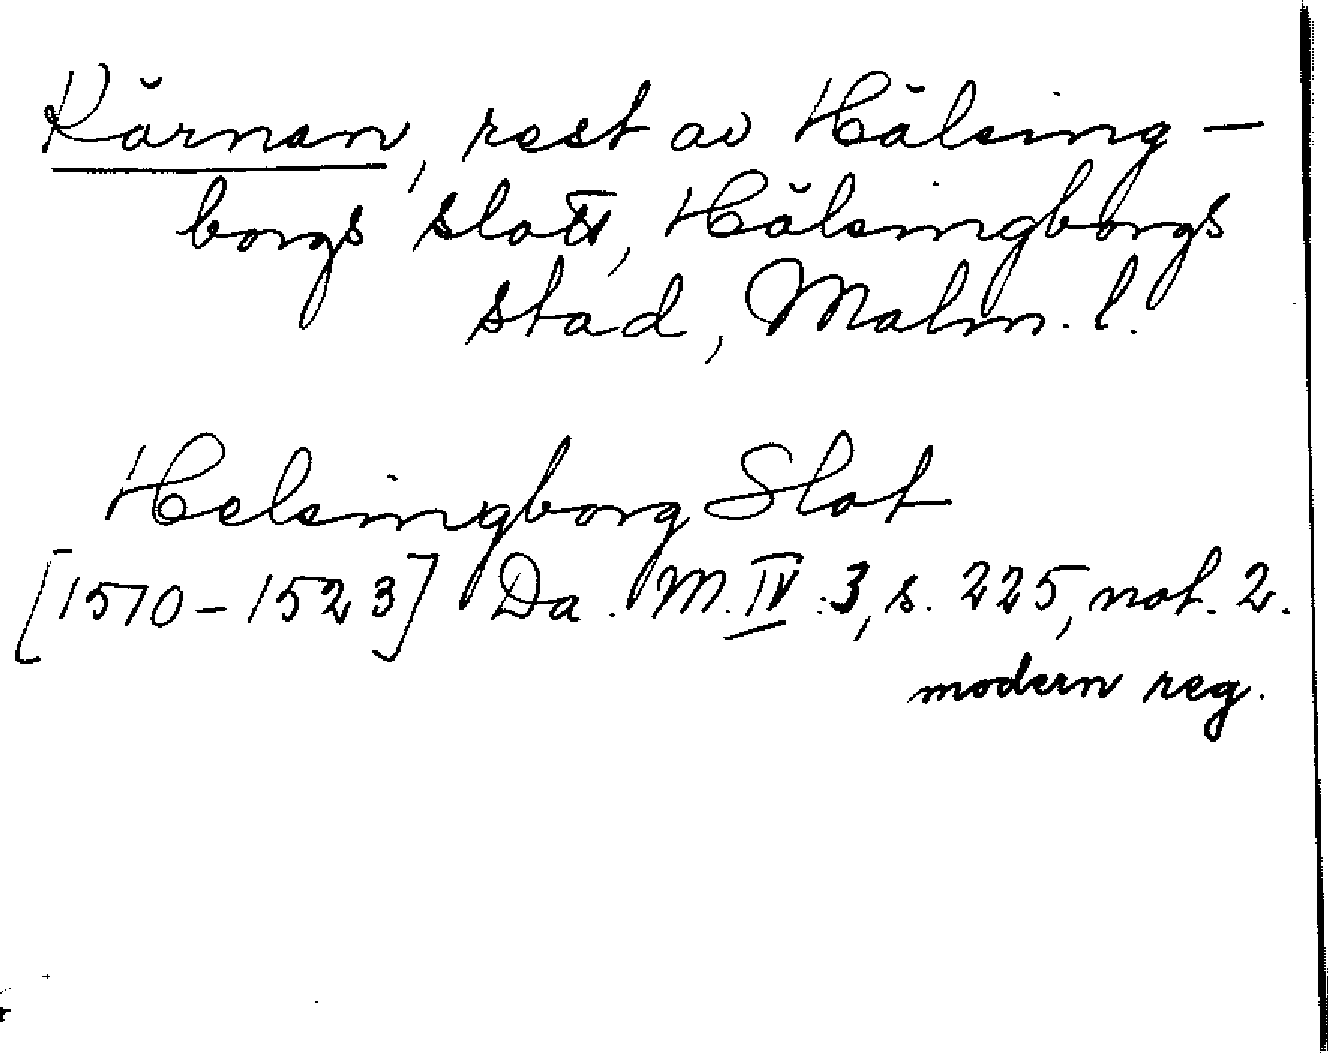 Kärnan, rest av Hälsing-
borgs slott, Hälsingborgs
stad, Malm. l.
Helsingborg Slot
[1510-1523] Da. M. IV. 3, s. 225, not. 2.
modern reg.